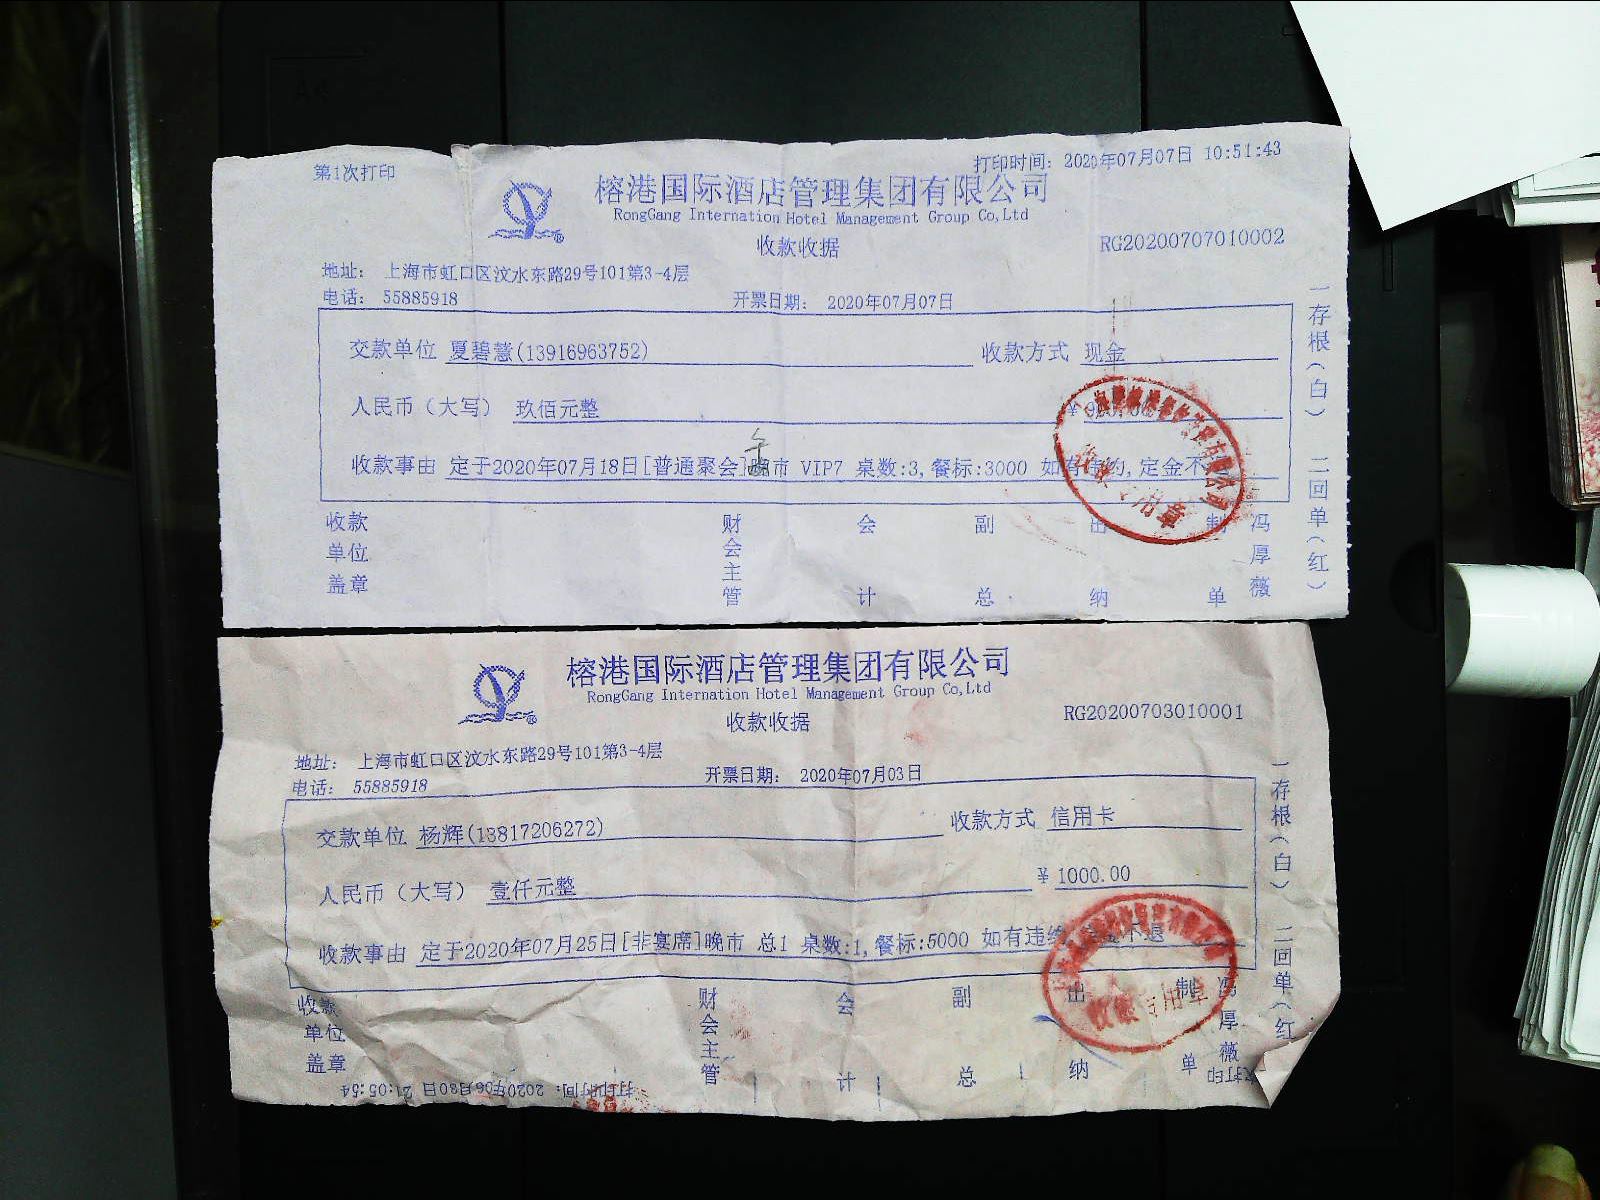 第1次打印
打印时间: 2020年07月07日 10:51:43
榕港国际酒店管理集团有限公司
RongGang Internation Hotel Management Group Co,Ltd
收款收据
RG20200707010002
地址: 上海市虹口区汶水东路29号101第3-4层
电话: 55885918
开票日期: 2020年07月07日
交款单位 夏碧慧(13916963752) 收款方式 现金
人民币（大写） 玖佰元整 ¥
收款事由 定于2020年07月18日[普通聚会]午市 VIP7 桌数:3,餐标:3000 如有违约,定金不
收款单位盖章
财会主管
会计
副总
出纳
制单
冯厚薇
一存根(白) 二回单(红)
专用章
榕港国际酒店管理集团有限公司
RongGang Internation Hotel Management Group Co,Ltd
收款收据
RG20200703010001
地址: 上海市虹口区汶水东路29号101第3-4层
电话: 55885918
开票日期: 2020年07月03日
交款单位 杨辉(13817206272) 收款方式 信用卡
人民币（大写） 壹仟元整 ¥ 1000.00
收款事由 定于2020年07月25日[非宴席]晚市 总1 桌数:1,餐标:5000 如有违约 不退
收款单位盖章
财会主管
会计
副总
出纳
制单
冯厚薇
一存根(白) 二回单(红
专用章
次打印
打印时间: 2020年06月30日 21:05:54